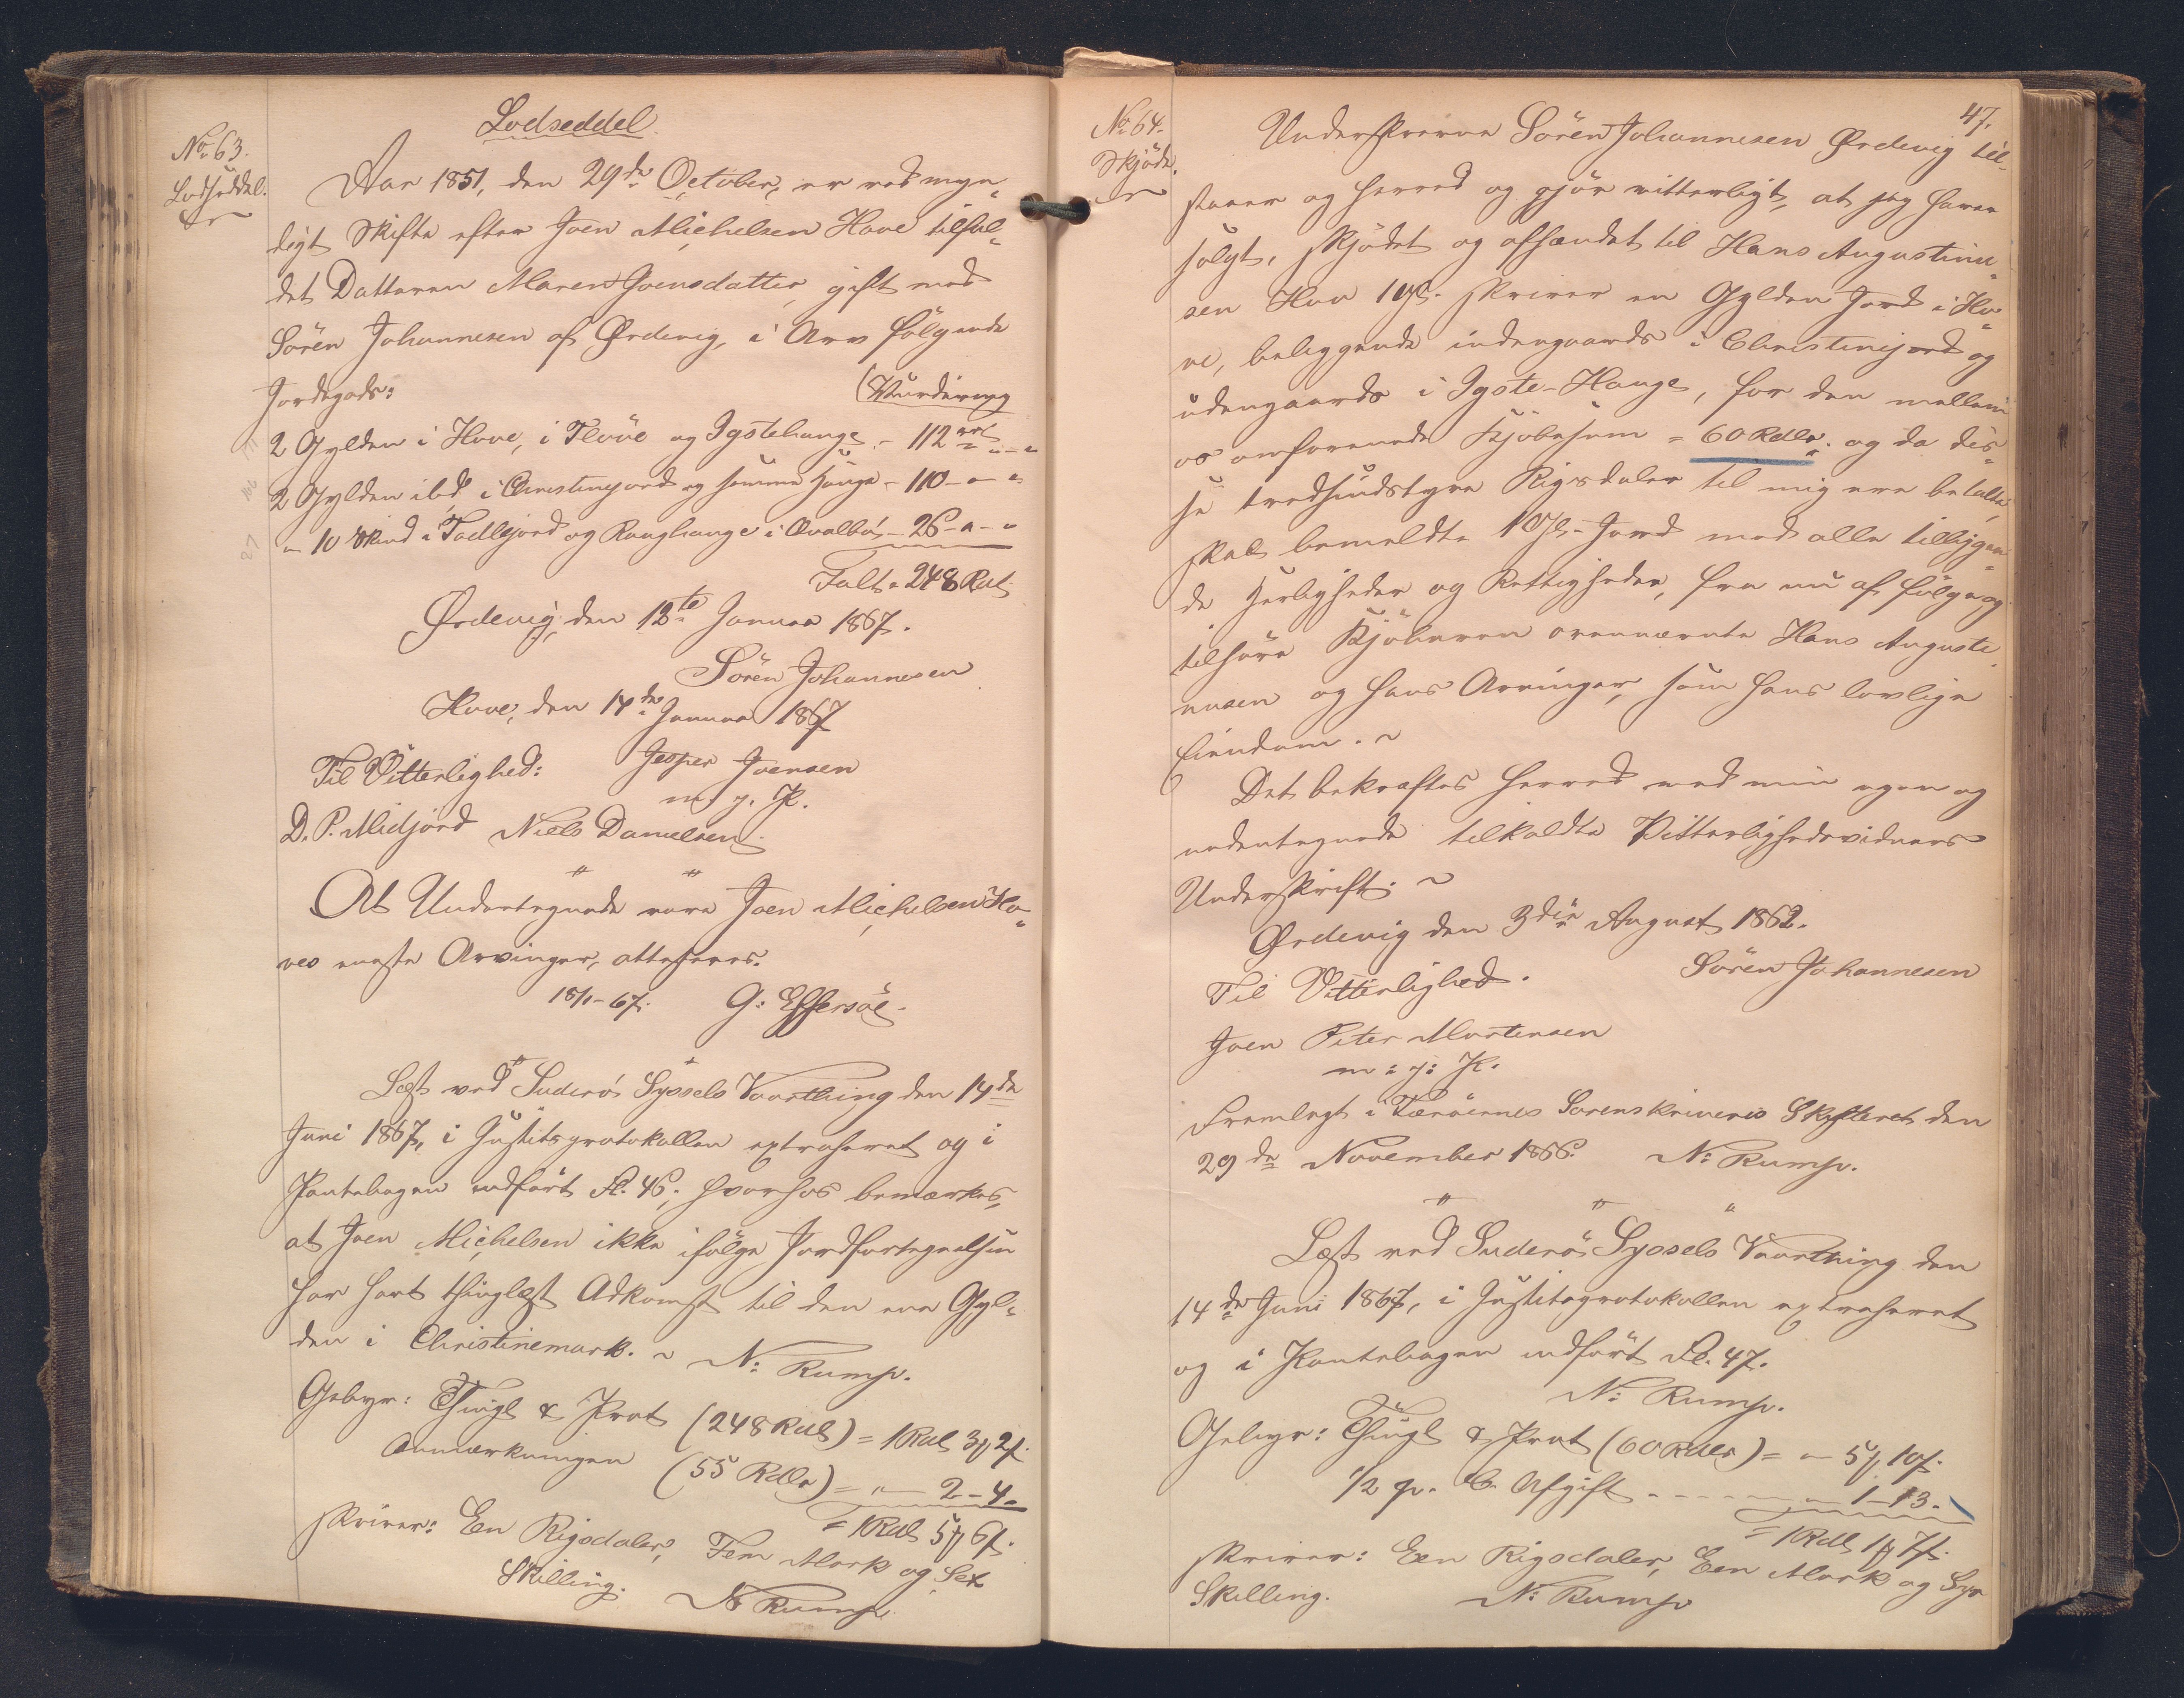 No 63.
Lodseddel.
Lodseddel
Aar 1851, den 29de October, er ved myn-
digt Skifte efter Joen Michelsen Hove tilfal-
det Datteren Maren Joensdatter, gift med
Sören Johannesen af Ørdevig, i Arv fölgende
Jordegods:
(Vurdering
2 Gylden i Hove, i Flöve og Igstehauge - 112 rd " - "
2 Gylden ibd i Christinejord og samme Hauge - 110 - " - "
" 10 Skind i Todlesjord og Ranghauge i Qvalbö - 26 - " - "
Talt = 248 Rd
Ørdevig, den 12te Januar 1867.
Sören Johannesen
Hove, den 14de Januar 1867
Til Vitterlighed: Jesper Joensen
m. f. P.
D. P. Midjord Niels Danielsen
At Undertegnede vare Joen Michelsen Ho-
ves eneste Arvinger, attesteres.
18/1-67. G: Effersöe.
Læst ved Suderö Syssels Vaarthing den 14de
Juni 1867, i Justitsprotokollen extraheret og i
Pantebogen indfört Fl. 46., hvorhos bemærkes,
at Joen Michelsen ikke ifölge Jordfortegnelsen
har havt thinglæst Adkomst til den ene Gyl-
den i Christinemark. ~ N: Rump.
Gebyr: Thingl & Prot (248 Rd) = 1 Rd 3 m 2 s.
Anmærkningen (55 Rdlr) = " 2 - 4.
= 1 Rd 5 m 6 s.
skriver: Een Rigsdaler, Fem Mark og Sex
Skilling. N: Rump.
47.
No 64.
Skjöde.
Underskrevne Sören Johannesen Ørdevig til-
staaer og herved og gjör vitterligt, at jeg haver
solgt, skjödet og afhændet til Hans Augustinu-
sen Hov 1 gl. skriver en Gylden Jord i Ho-
ve, beliggende indengaards i Christinejord og
udengaards i Igste-Hauge, for den mellem
os omforenede Kjöbesum = 60 Rdlr. og da dis-
se tredsindstyve Rigsdaler til mig ere betalte,
skal bemeldte 1 Gl. Jord med alle tilliggen-
de Herligheder og Rettigheder, fra nu af fölge og
tilhöre Kjöberen ovennævnte Hans Augusti-
nusen og hans Arvinger, som hans lovlige
Eiendom. ~
Det bekræftes herved med min egen og
nedentegnede tilkaldte Vitterlighedsvidners
Underskrift. ~
Ørdevig den 3die August 1862.
Til Vitterlighed. Sören Johannesen
Joen Peter Mortensen
m: f: P.
Fremlagt i Færöernes Sorenskriveries Skifteret den
29de November 1866. N: Rump.
Læst ved Suderö Syssels Vaarthing den
14de Juni 1867, i Justitsprotokollen extraheret
og i Pantebogen indfört Fl. 47.
N: Rump.
Gebyr: Thingl & Prot (60 Rdlr) = " 5 m 10 s.
1/2 p. C. Afgift - - - - " 1 - 13.
= 1 Rd 1 m 7 s.
skriver: Een Rigsdaler, Een Mark og Syv
Skilling. N: Rump